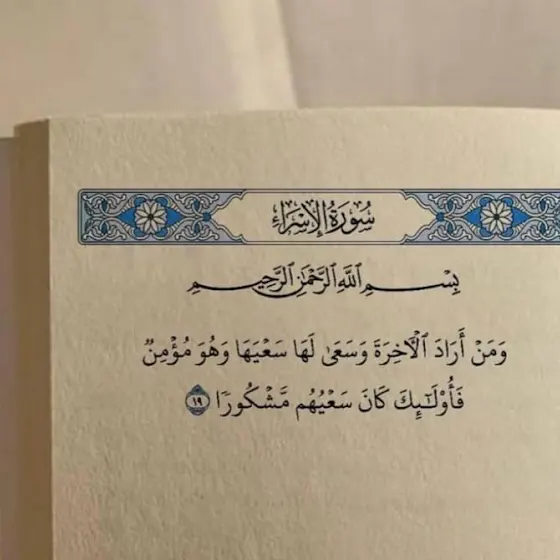 سُورَةُ الإِسْرَاء
بِسْمِ ٱللَّهِ ٱلرَّحْمَٰنِ ٱلرَّحِيمِ
وَمَنْ أَرَادَ ٱلْـَٔاخِرَةَ وَسَعَىٰ لَهَا سَعْيَهَا وَهُوَ مُؤْمِنٌ
فَأُو۟لَـٰٓئِكَ كَانَ سَعْيُهُم مَّشْكُورًا ١٩